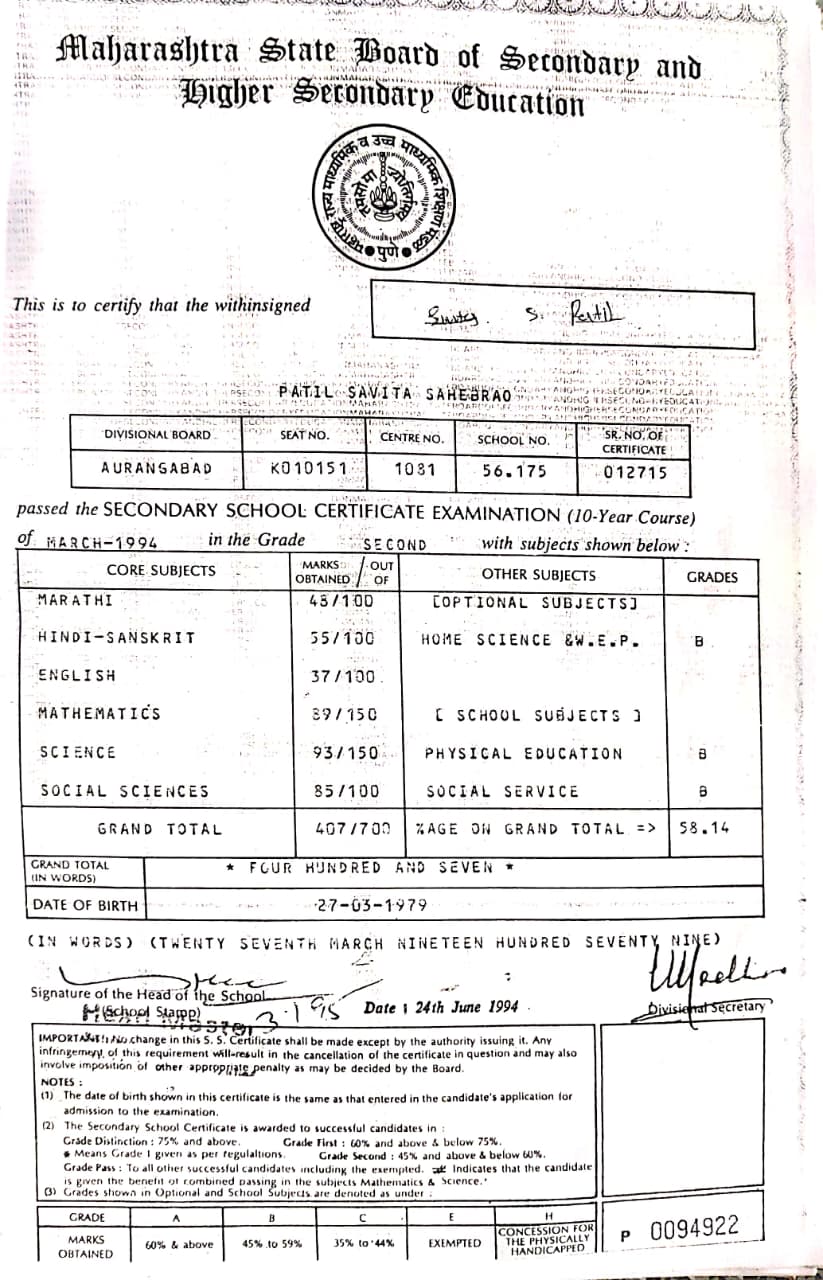 Maharashtra State Board of Secondary and
Higher Secondary Education
महाराष्ट्र राज्य माध्यमिक व उच्च माध्यमिक शिक्षण मंडळ
तमसो मा ज्योतिर्गमय
पुणे
This is to certify that the withinsigned
S. Patil
PATIL SAVITA SAHEBRAO
DIVISIONAL BOARD SEAT NO. CENTRE NO. SCHOOL NO. SR. NO. OF CERTIFICATE
AURANGABAD K010151 1031 56.175 012715
passed the SECONDARY SCHOOL CERTIFICATE EXAMINATION (10-Year Course)
of MARCH-1994 in the Grade SECOND with subjects shown below :
CORE SUBJECTS MARKS OBTAINED / OUT OF OTHER SUBJECTS GRADES
MARATHI 48/100 [OPTIONAL SUBJECTS]
HINDI-SANSKRIT 55/100 HOME SCIENCE &W.E.P. B
ENGLISH 37/100
MATHEMATICS 89/150 [ SCHOOL SUBJECTS ]
SCIENCE 93/150 PHYSICAL EDUCATION B
SOCIAL SCIENCES 85/100 SOCIAL SERVICE B
GRAND TOTAL 407/700 %AGE ON GRAND TOTAL => 58.14
GRAND TOTAL (IN WORDS) * FOUR HUNDRED AND SEVEN *
DATE OF BIRTH 27-03-1979
(IN WORDS) (TWENTY SEVENTH MARCH NINETEEN HUNDRED SEVENTY NINE)
Signature of the Head of the School
(School Stamp) Date : 24th June 1994 Divisional Secretary
IMPORTANT : No change in this S. S. Certificate shall be made except by the authority issuing it. Any
infringement of this requirement will result in the cancellation of the certificate in question and may also
involve imposition of other appropriate penalty as may be decided by the Board.
NOTES :
(1) The date of birth shown in this certificate is the same as that entered in the candidate's application for
admission to the examination.
(2) The Secondary School Certificate is awarded to successful candidates in :
Grade Distinction : 75% and above. Grade First : 60% and above & below 75%.
* Means Grade I given as per regulaltions. Grade Second : 45% and above & below 60%.
Grade Pass : To all other successful candidates including the exempted. Indicates that the candidate
is given the benefit of combined passing in the subjects Mathematics & Science.
(3) Grades shown in Optional and School Subjects are denoted as under :
GRADE A B C E H
MARKS OBTAINED 60% & above 45% to 59% 35% to 44% EXEMPTED CONCESSION FOR THE PHYSICALLY HANDICAPPED
P 0094922